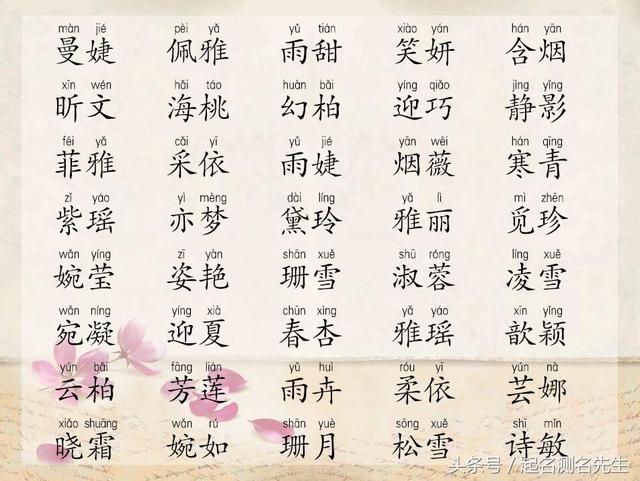 màn jié pèi yǎ yǔ tián xiào yán hán yān
曼婕 佩雅 雨甜 笑妍 含烟
xīn wén hǎi táo huàn bǎi yíng qiǎo jìng yǐng
昕文 海桃 幻柏 迎巧 静影
fēi yǎ cǎi yī yǔ jié yān wēi hán qīng
菲雅 采依 雨婕 烟薇 寒青
zǐ yáo yì mèng dài líng yǎ lì mì zhēn
紫瑶 亦梦 黛玲 雅丽 觅珍
wǎn yíng zī yàn shān xuě shū róng líng xuě
婉莹 姿艳 珊雪 淑蓉 凌雪
wǎn níng yíng xià chūn xìng yǎ yáo xīn yǐng
宛凝 迎夏 春杏 雅瑶 歆颖
yún bǎi fāng lián yǔ huì róu yī yún nà
云柏 芳莲 雨卉 柔依 芸娜
xiǎo shuāng wǎn rú shān yuè sōng xuě shī mǐn
晓霜 婉如 珊月 松雪 诗敏
头条号 / 起名测名先生